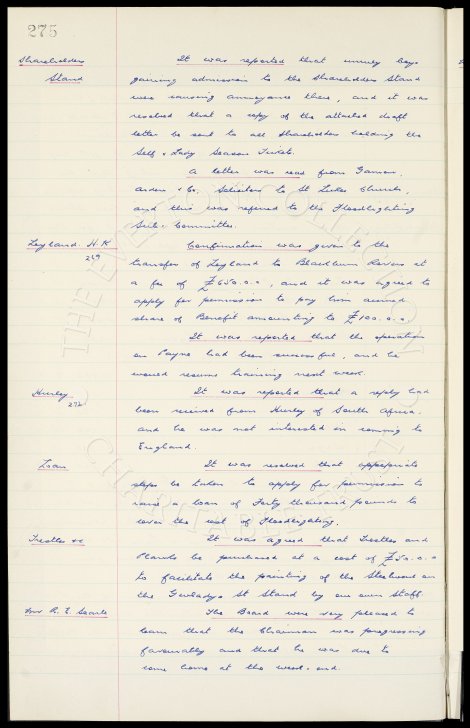 275
Shareholders
Stand
It was reported that unruly boys
gaining admission to the Shareholders Stand
were causing annoyance there, and it was
resolved that a copy of the attached draft
letter be sent to all shareholders holding the
Self & Lady Season Tickets.
A letter was read from
& Co. Solicitors to St Lukes Church,
and this was referred to the Floodlighting
Sub-Committee.
Leyland. H.K
Confirmation was given to the
transfer of Leyland to Blackburn Rovers at
a fee of £650.0.0, and it was agreed to
apply for permission to pay him accrued
share of Benefit amounting to £100.0.0.
It was reported that the operation
on Payne had been successful, and he
would resume training next week.
Hurley
272
It was reported that a reply had
been received from Hurley of South Africa.
and he was not interested in coming to
England.
Loan
It was resolved that appropriate
steps be taken to apply for permission to
raise a loan of Forty thousand pounds to
cover the cost of Floodlighting.
Trestles &c
It was agreed that Trestles and
Planks be purchased at a cost of £50.0.0
to facilitate the painting of the Steelwork on
the Gwladys St Stand by our own Staff.
R. E. Searle
The Board were very pleased to
learn that the Chairman was progressing
favourably and that he was due to
come home at the week-end.
THE EVERTON COLLECTION
CHARITABLE TRUST